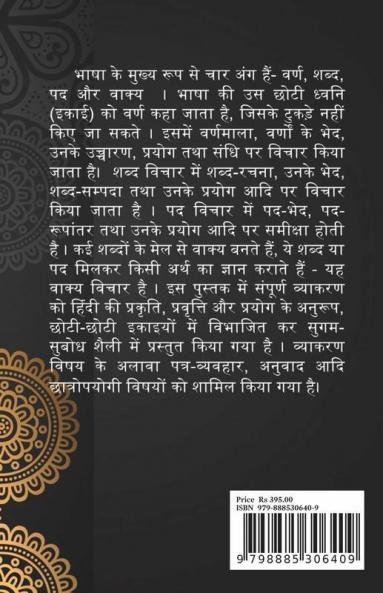 भाषा के मुख्य रूप से चार अंग हैं- वर्ण, शब्द,
पद और वाक्य । भाषा की उस छोटी ध्वनि
(इकाई) को वर्ण कहा जाता है, जिसके टुकड़े नहीं
किए जा सकते । इसमें वर्णमाला, वर्णों के भेद,
उनके उच्चारण, प्रयोग तथा संधि पर विचार किया
जाता है। शब्द विचार में शब्द-रचना, उनके भेद,
शब्द-सम्पदा तथा उनके प्रयोग आदि पर विचार
किया जाता है । पद विचार में पद-भेद, पद-
रूपांतर तथा उनके प्रयोग आदि पर समीक्षा होती
है । कई शब्दों के मेल से वाक्य बनते हैं, ये शब्द या
पद मिलकर किसी अर्थ का ज्ञान कराते हैं - यह
वाक्य विचार है । इस पुस्तक में संपूर्ण व्याकरण
को हिंदी की प्रकृति, प्रवृत्ति और प्रयोग के अनुरूप,
छोटी-छोटी इकाइयों में विभाजित कर सुगम-
सुबोध शैली में प्रस्तुत किया गया है । व्याकरण
विषय के अलावा पत्र-व्यवहार, अनुवाद आदि
छात्रोपयोगी विषयों को शामिल किया गया है।
Price Rs 395.00
ISBN 979-888530640-9
9 798885 306409